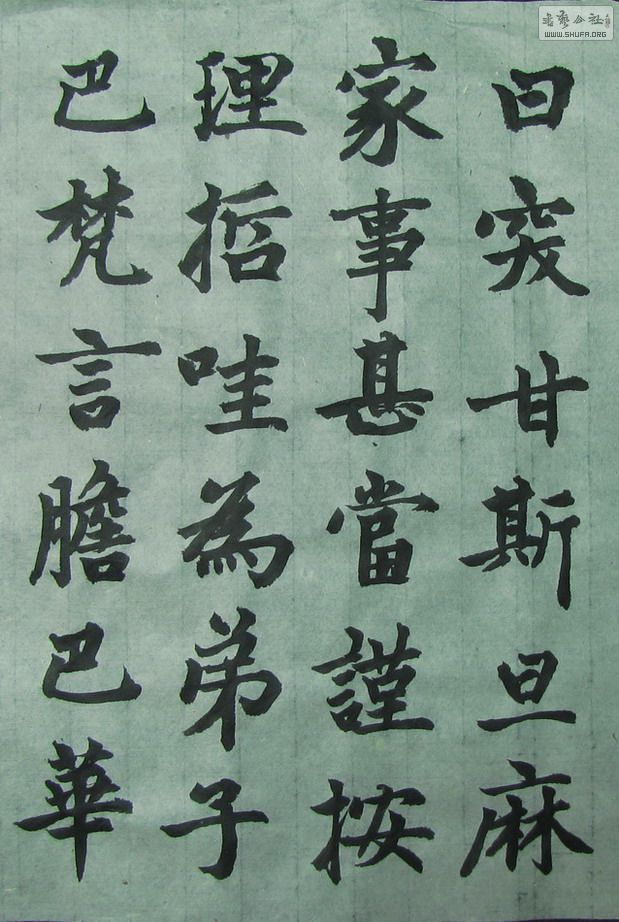 曰突甘斯旦麻
家事甚當謹按
理哲哇為弟子
巴梵言膽巴華
书艺公社
WWW.SHUFA.ORG